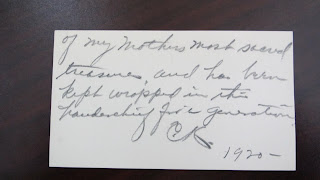 of my Mothers most sacred
treasures, and has been
kept wrapped in this
handerchief for generation
C.K.
1920-